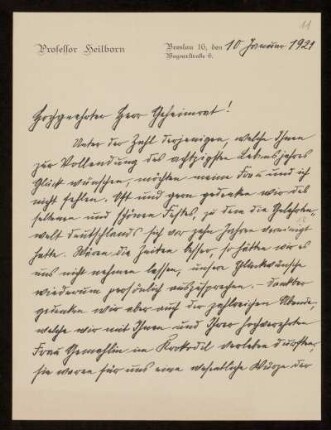 11
Professor Heilborn
Breslau 16, den 10 Januar 1921
Wagnerstraße 6.
Hochgeehrter Herr Geheimrat!
Unter der Zahl derjenigen, welche Ihnen
zur Vollendung des achtzigsten Lebensjahres
Glück wünschen, möchten meine Frau und ich
nicht fehlen. Oft und gern gedenken wir des
seltenen und schönen Festes, zu dem die Gelehrten-
welt Deutschlands sich vor zehn Jahren vereinigt
hatte. Wären die Zeiten besser, so hätten wir es
uns nicht nehmen lassen, unsere Glückwünsche
wiederum persönlich auszusprechen. Dankbar
gedenken wir aber auch der zahlreichen Abende,
welche wir mit Ihnen und Ihrer hochverehrten
Frau Gemahlin im Krokodil verleben durften,
sie waren für uns eine wesentliche Würze der